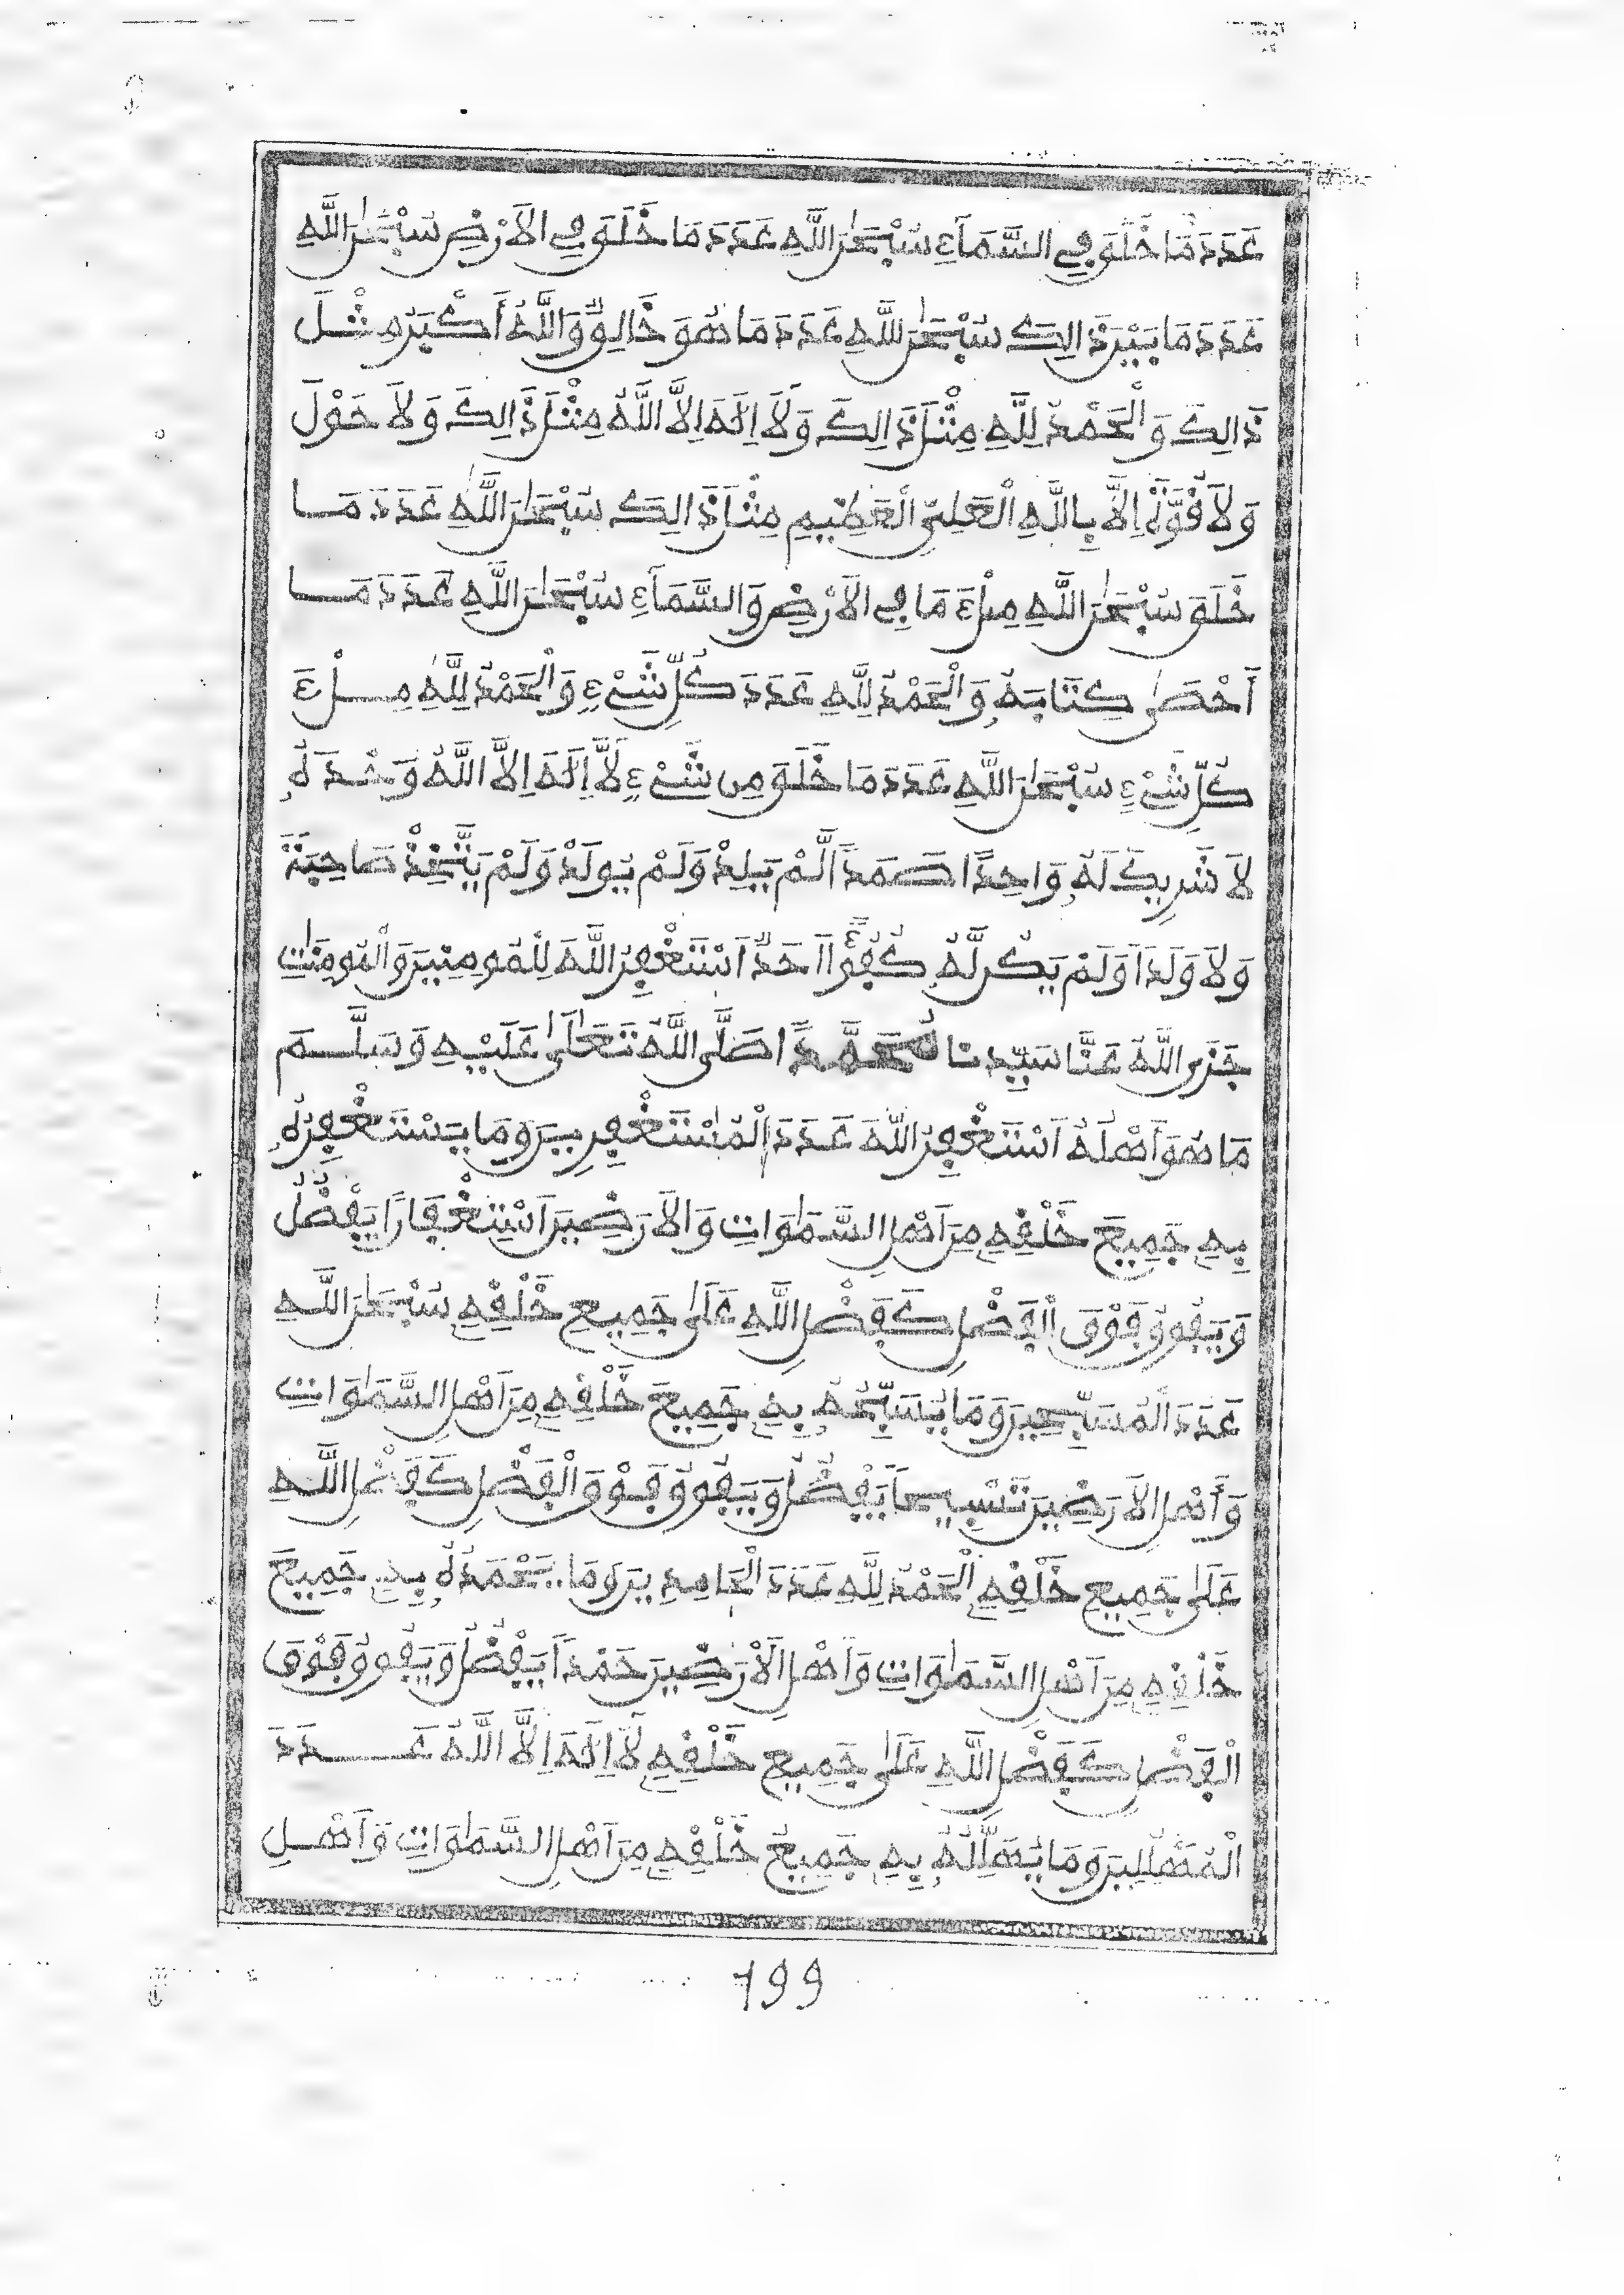 عَدَدَ مَا خَلَقَ فِي السَّمَآءِ سُبْحَٰنَ اللَّهِ عَدَدَ مَا خَلَقَ فِي الَارْضِ سُبْحَٰنَ اللَّهِ
عَدَدَ مَا بَيْنَ ذَالِكَ سُبْحَٰنَ اللَّهِ عَدَدَ مَا هُوَ خَالِقٌ وَاللَّهُ أَكْبَرُ مِثْلَ
ذَالِكَ وَالْحَمْدُ لِلَّهِ مِثْلَ ذَالِكَ وَلَآ اِلَٰهَ اِلَّا اللَّهُ مِثْلَ ذَالِكَ وَلَا حَوْلَ
وَلَا قُوَّةَ اِلَّا بِاللَّهِ الْعَلِيِّ الْعَظِيمِ مِثْلَ ذَالِكَ سُبْحَٰنَ اللَّهِ عَدَدَ مَا
خَلَقَ سُبْحَٰنَ اللَّهِ مِلْءَ مَا فِي الَارْضِ وَالسَّمَآءِ سُبْحَٰنَ اللَّهِ عَدَدَ مَا
أَحْصَىٰ كِتَابَهُ وَالْحَمْدُ لِلَّهِ عَدَدَ كُلِّ شَيْءٍ وَالْحَمْدُ لِلَّهِ مِلْءَ
كُلِّ شَيْءٍ سُبْحَٰنَ اللَّهِ عَدَدَ مَا خَلَقَ مِن شَيْءٍ لَآ اِلَٰهَ اِلَّا اللَّهُ وَحْدَهُ
لَا شَرِيكَ لَهُ وَاحِدًا صَمَدًا لَّمْ يَلِدْ وَلَمْ يُولَدْ وَلَمْ يَتَّخِذْ صَاحِبَةً
وَلَا وَلَدًا وَلَمْ يَكُن لَّهُ كُفُؤًا اَحَدٌ اَسْتَغْفِرُ اللَّهَ لِلْمُومِنِينَ وَالْمُومِنَٰتِ
جَزَى اللَّهُ عَنَّا سَيِّدِنَا مُحَمَّدًا صَلَّى اللَّهُ تَعَٰلَىٰ عَلَيْهِ وَسَلَّمَ
مَا هُوَ أَهْلُهُ اَسْتَغْفِرُ اللَّهَ عَدَدَ الْمُسْتَغْفِرِينَ وَمَا يَسْتَغْفِرُهُ
بِهِ جَمِيعُ خَلْقِهِ مِنَ اَهْلِ السَّمَٰوَاتِ وَالَارَضِينَ اَسْتِغْفَارًا يَفْضُلُ
وَيَفُوقُ فَوْقَ الْفَضْلِ كَفَضْلِ اللَّهِ عَلَىٰ جَمِيعِ خَلْقِهِ سُبْحَٰنَ اللَّهِ
عَدَدَ الْمُسَبِّحِينَ وَمَا يُسَبِّحُهُ بِهِ جَمِيعُ خَلْقِهِ مِنَ اَهْلِ السَّمَٰوَاتِ
وَأَهْلِ الَارَضِينَ تَسْبِيحًا يَفْضُلُ وَيَفُوقُ فَوْقَ الْفَضْلِ كَفَضْلِ اللَّهِ
عَلَىٰ جَمِيعِ خَلْقِهِ الْحَمْدُ لِلَّهِ عَدَدَ الْحَامِدِينَ وَمَا يَحْمَدُهُ بِهِ جَمِيعُ
خَلْقِهِ مِنَ اَهْلِ السَّمَٰوَاتِ وَاَهْلِ الَارَضِينَ حَمْدًا يَفْضُلُ وَيَفُوقُ فَوْقَ
الْفَضْلِ كَفَضْلِ اللَّهِ عَلَىٰ جَمِيعِ خَلْقِهِ لَآ اِلَٰهَ اِلَّا اللَّهُ عَدَدَ
الْمُهَلِّلِينَ وَمَا يُهَلِّلُهُ بِهِ جَمِيعُ خَلْقِهِ مِنَ اَهْلِ السَّمَٰوَاتِ وَاَهْلِ
199